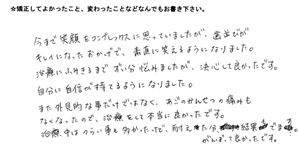 ☆矯正してよかったこと、変わったことなどなんでもお書き下さい。
今まで笑顔をコンプレックスに思っていましたが、歯並びが
キレイになったおかげで、素直に笑えるようになりました。
治療にふみきるまですい分悩みましたが、決心して良かったです。
自分に自信が持てるようになりました。
また外見的な事だけではなく、あごのかんせつの痛みも
なくなったので、治療をして本当に良かったです。
治療中はつらい事も多かったので、耐えた分 結果も でます。
がんばって良かったです。